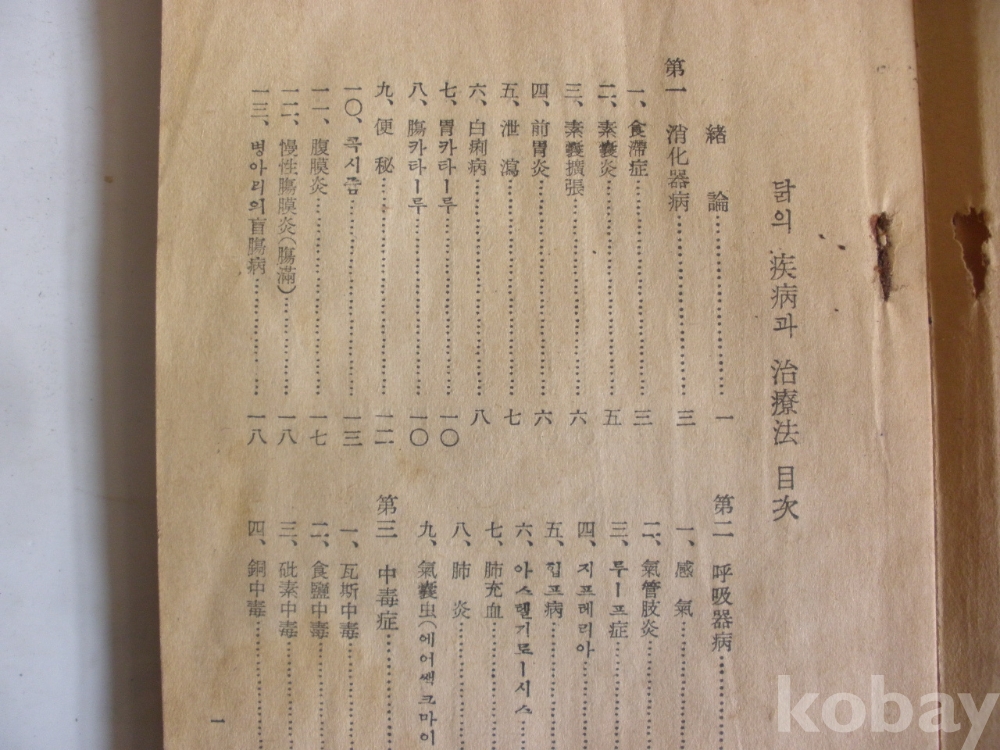 닭의 疾病과 治療法 目次
緒論 一
第一 消化器病 三
一、食滯症 三
二、素囊炎 五
三、素囊擴張 六
四、前胃炎 六
五、泄瀉 七
六、白痢病 八
七、胃카타ー루 一〇
八、腸카타ー루 一〇
九、便秘 一二
一〇、콕시즘 一三
一一、腹膜炎 一七
一二、慢性腸膜炎(腸滿) 一八
一三、병아리의 盲腸病 一八
第二 呼吸器病
一、感氣
二、氣管肢炎
三、루ー프症
四、지프테리아
五、집프病
六、아스펠기로ー시스
七、肺充血
八、肺炎
九、氣囊虫(에어쌕크마이
第三 中毒症
一、瓦斯中毒
二、食鹽中毒
三、砒素中毒
四、銅中毒
一
kobay